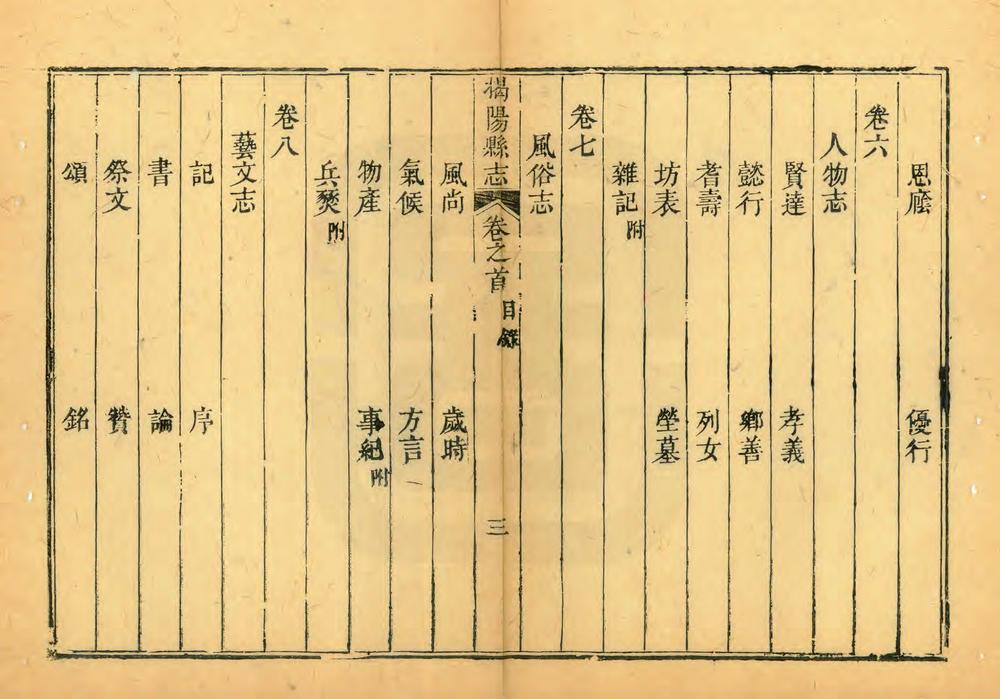 恩廕 優行
卷六
人物志
賢達 孝義
懿行 鄉善
耆壽 列女
坊表 塋墓
雜記附
卷七
風俗志
揭陽縣志 卷之首 目錄 三
風尚 歲時
氣候 方言
物產 事紀附
兵燹附
卷八
藝文志
記 序
書 論
祭文 贊
頌 銘